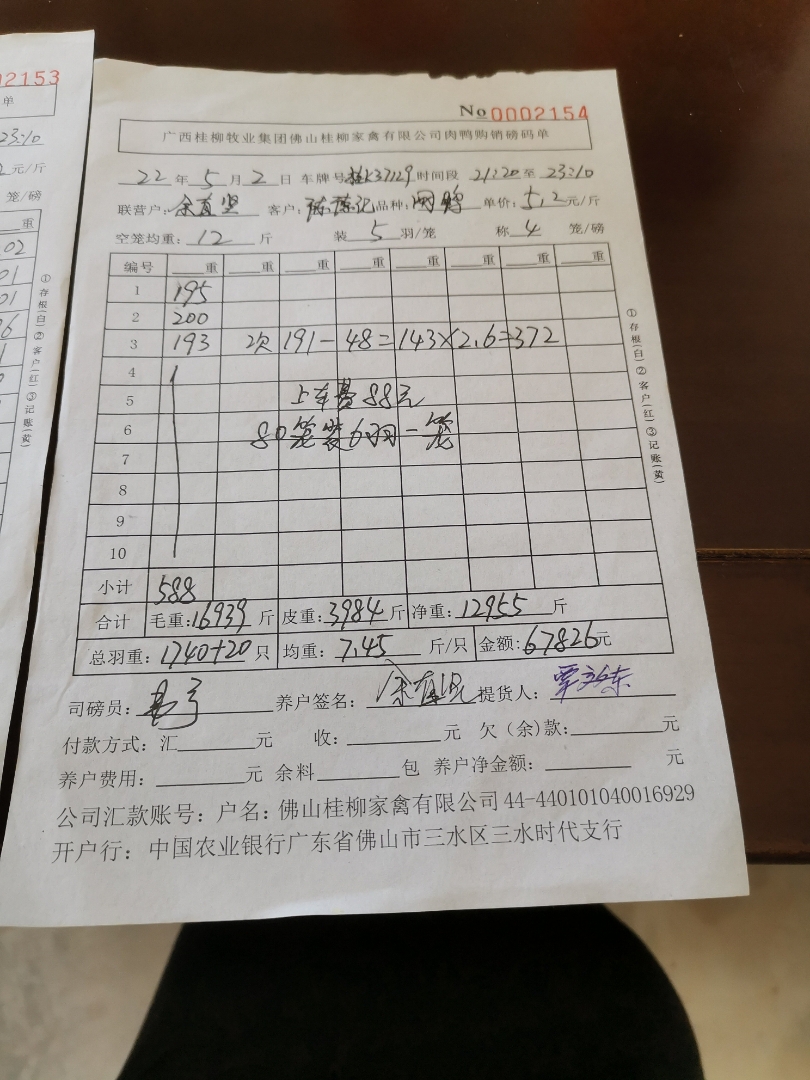 2153
单
23:10
元/斤
笼/磅
重
02
01
01
①存根(白)②客户(红)③记账(黄)
No 0002154
广西桂柳牧业集团佛山桂柳家禽有限公司肉鸭购销磅码单
22年5月2日 车牌号桂K37129时间段 21:20至23:10
联营户: 客户: 品种: 单价:5.2元/斤
空笼均重:12斤 装5羽/笼 称4笼/磅
编号 重 重 重 重 重 重 重 重
1 195
2 200
3 193 次 191-48=143×2.6=372
4
5 上车费88元
6 80笼装6羽一笼
7
8
9
10
小计 588
合计 毛重:16939斤 皮重:3984斤 净重:12955斤
总羽重:1740+20只 均重:7.45斤/只 金额:67826元
司磅员: 养户签名: 提货人:
付款方式:汇 元 收: 元 欠(余)款: 元
养户费用: 元 余料 包 养户净金额: 元
公司汇款账号:户名:佛山桂柳家禽有限公司44-440101040016929
开户行:中国农业银行广东省佛山市三水区三水时代支行
①存根(白)②客户(红)③记账(黄)